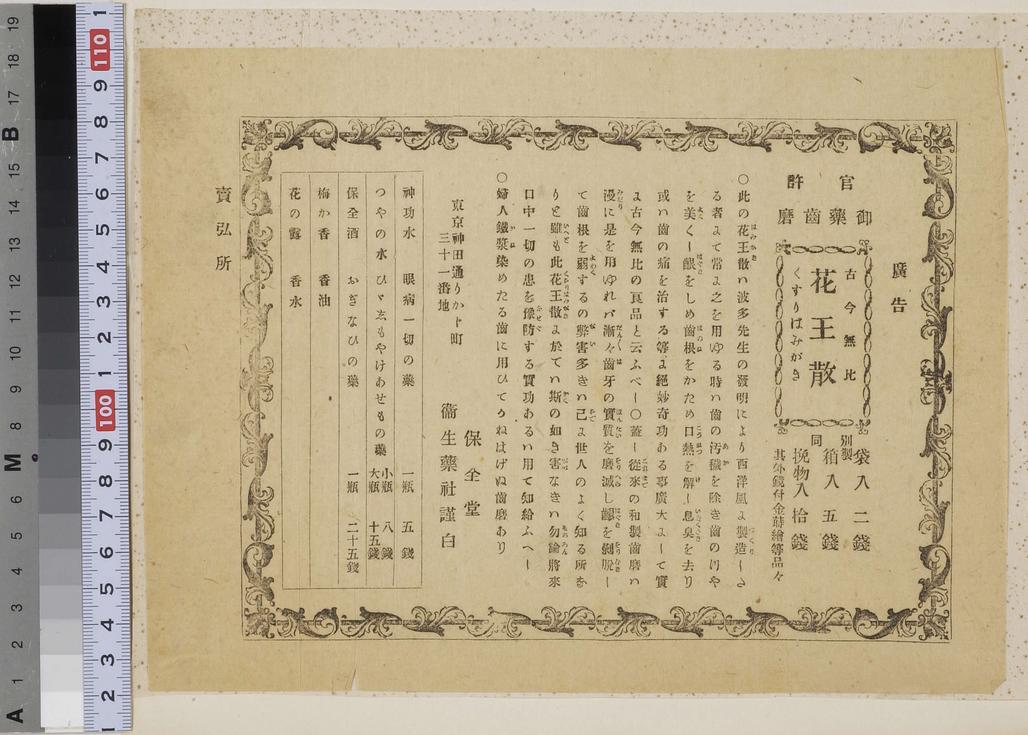 廣告
官許
御藥齒磨
古今無比
花王散
くすりはみがき
袋入 二錢
別製 箱入 五錢
同 挽物入 拾錢
其外錢付金蒔繪等品々
○此の花王散ハ波多先生の發明により西洋風ょ製造しさ
る者ょて常ょ之を用ゆる時ハ齒の汚穢を除き齒の
を美くし齦をしめ齒根をかため口熱を解し息臭を去り
或ハ齒の痛を治する等ょ絶妙奇功ある事廣大ょして實
ょ古今無比の良品と云ふべし○蓋し從來の和製齒磨ハ
漫に是を用ゆれバ漸々齒牙の實質を磨滅し齦を剝脱し
て齒根を弱するの弊害多きハ已ょ世人のよく知る所を
りと雖も此花王散ょ於てハ斯の如き害なきハ勿論將來
口中一切の患を豫防する實功あるハ用て知給ふべし
○婦人鐵漿染めたる齒に用ひてうねはげぬ齒磨あり
東京神田通りかト町
三十一番地
保全堂
衞生藥社謹白
神功水 眼病一切の藥 一瓶 五錢
つやの水 ひゞ志もやけあせもの藥 小瓶 八錢 大瓶 十五錢
保全酒 おぎなひの藥 一瓶 二十五錢
梅か香 香油
花の露 香水
賣弘所
B
M
A
1
2
3
4
5
6
7
8
9
10
11
12
13
14
15
17
18
19
1
110
9
8
7
6
5
4
3
2
1
100
9
8
7
6
5
4
3
2
1
90
9
8
7
6
5
4
3
2